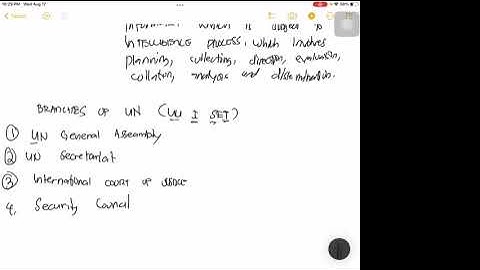 10:29 PM Wed Aug 17
59%
Notes
information which is subject to
INTELLIGENCE PROCESS, which involves
planning, collecting, direction, evaluation,
collation, analysis and dissemination.
BRANCHES OF UN (UU I SEI)
1 UN General Assembly
2 UN Secretariat
3 International court of Justice
4. Security Council